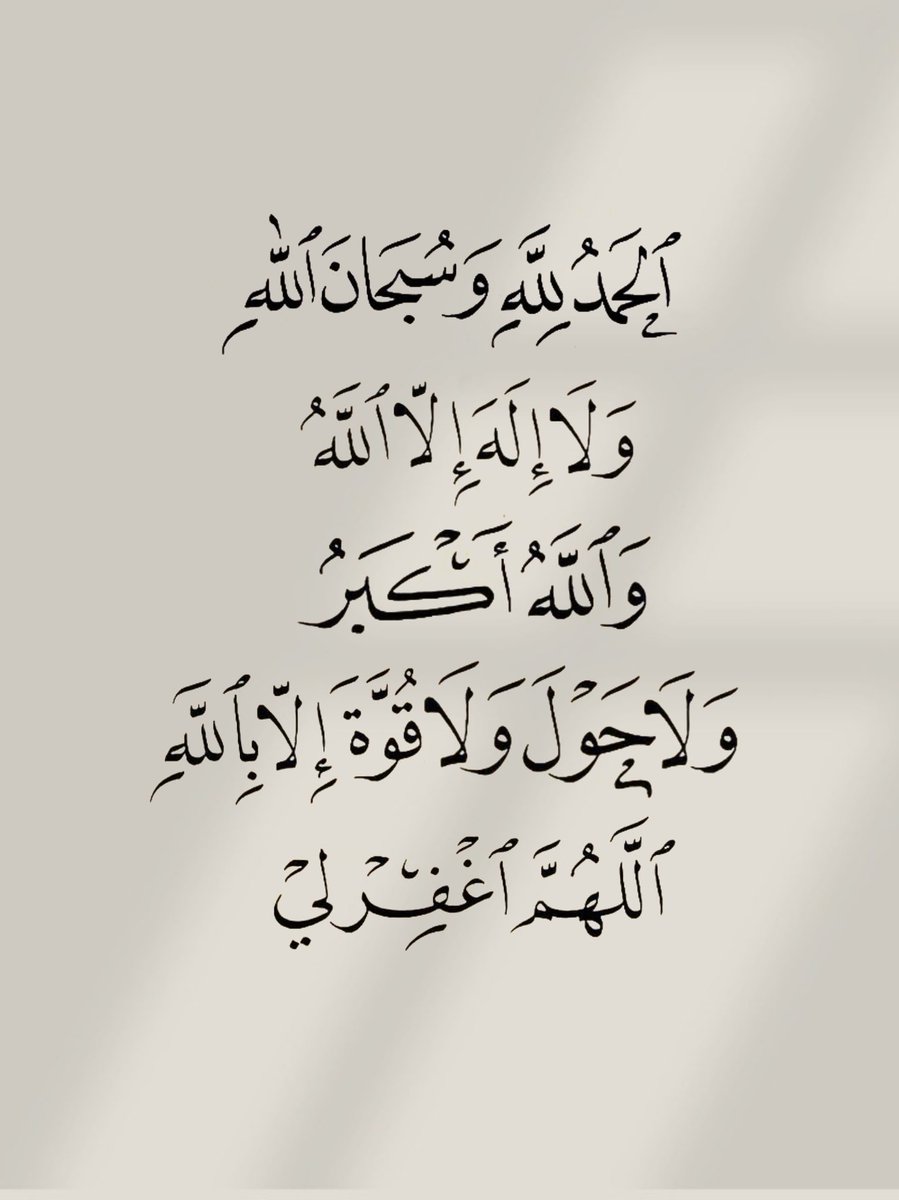 ٱلْحَمْدُ لِلَّهِ وَسُبْحَانَ ٱللَّهِ
وَلَا إِلَهَ إِلَّا ٱللَّهُ
وَٱللَّهُ أَكْبَرُ
وَلَا حَوْلَ وَلَا قُوَّةَ إِلَّا بِٱللَّهِ
ٱللَّهُمَّ ٱغْفِرْ لِيْ